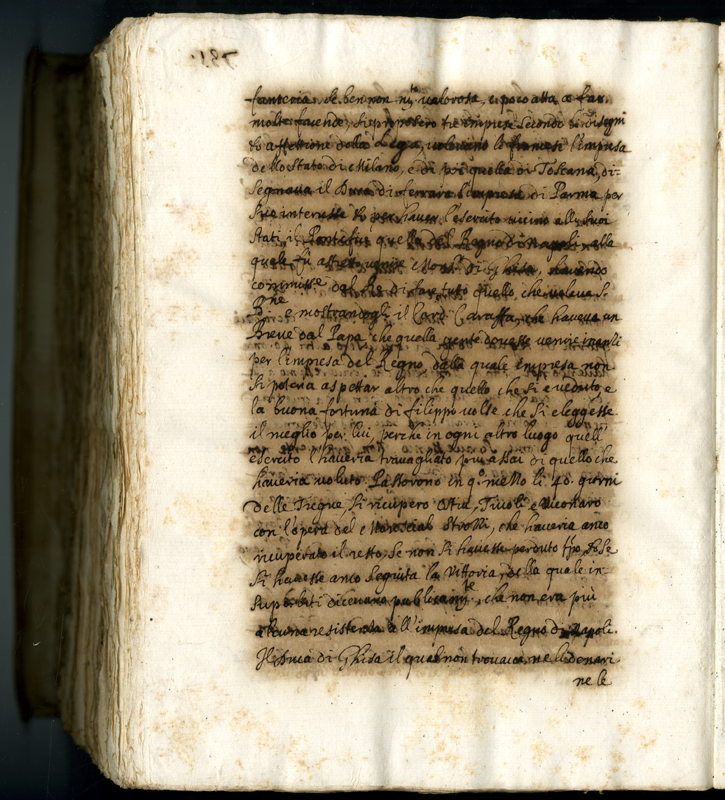 fanteria, se ben non m.te valorosa, e poco atta a far
molte facende, si proposero tre imprese secondo li disegni
affettione della Lega, volevano li francesi l'impresa
dello stato di Milano, e di poi quella di Toscana, di-
segnava il Duca di ferrara l'impresa di Parma per
suo interesse per haver l'esercito vicino alli suoi
stati, il Pontefice quella del Regno di Napoli, alla
quale fù astretto venire Mons.r di Ghisa, havendo
commisse dal Re di fare tutto quello, che voleva S.
e mostrandogli il Card. Caraffa, che haveva un
Breve dal Papa che quella gente dovesse venire
per l'impresa del Regno, dalla quale impresa non
si poteva aspettar altro che quello che si è veduto, e
la buona fortuna di filippo volse che si eleggesse
il meglio per lui, perche in ogni altro luogo quell'
esercito l'haveria travagliato più assai di quello che
haveria voluto. Passorono in q.o mezzo li 40. giorni
delle Tregue, si ricuperò Ostia, Tivoli e Vicovaro
con l'opera del Maresciale Strozzi, che haveria anco
ricuperato il resto, se non si havesse perduto tpo, se
si havesse anco seguita la Vittoria, della quale in-
superbiti dicevano publicam.te, che non era più
alcuna resistenza all'impresa del Regno di Napoli.
Il Duca di Ghisa il qual non trovava ne li denari
ne le